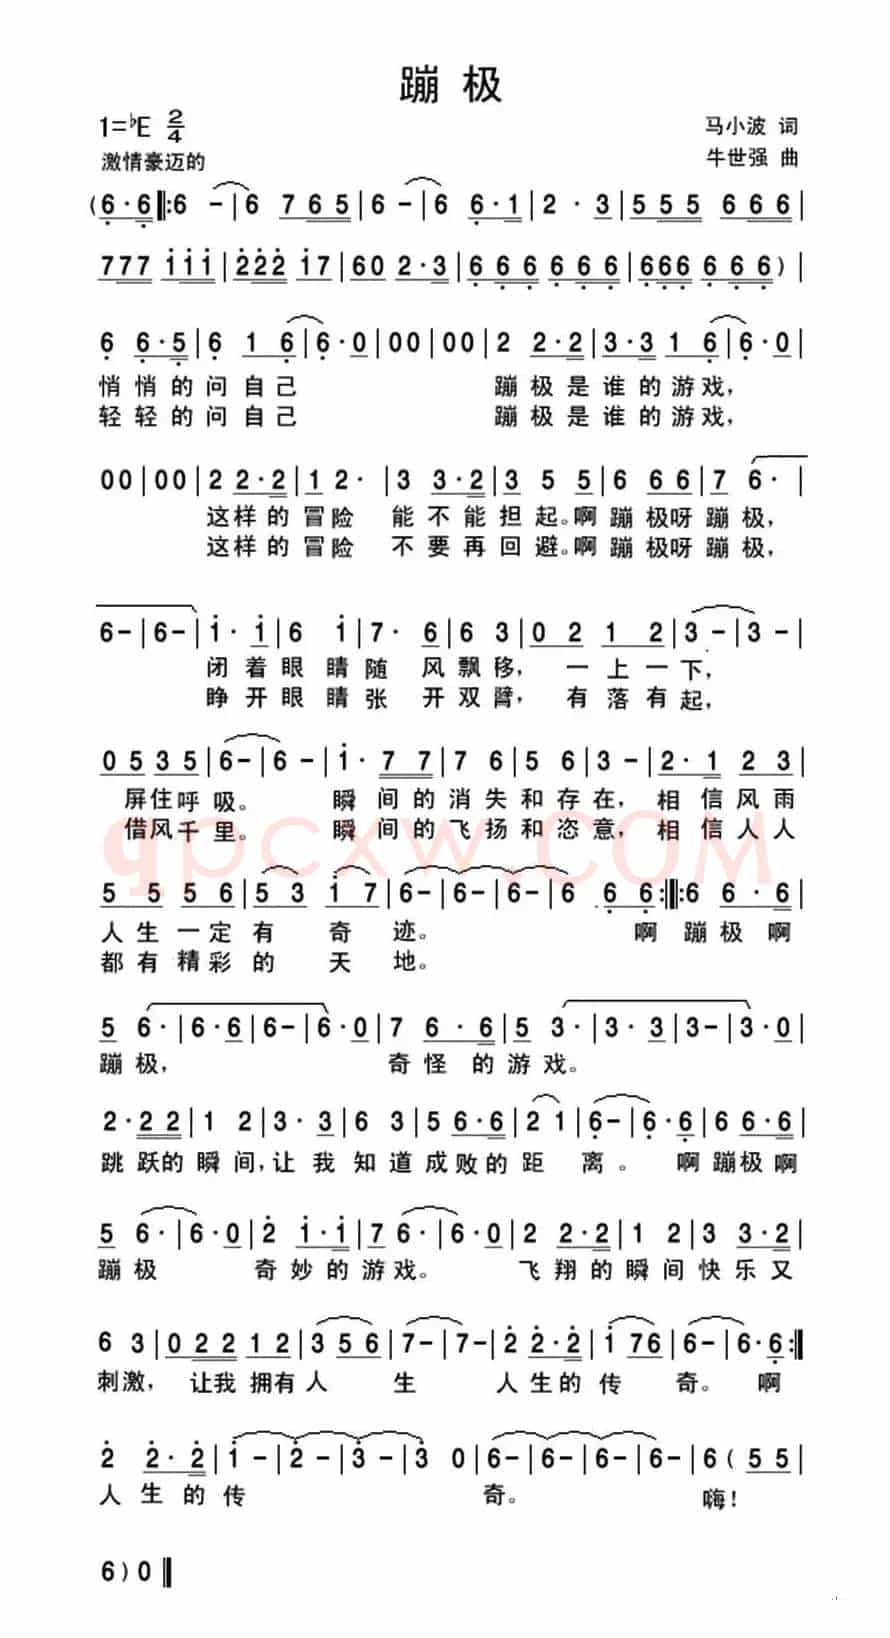 蹦 极
1=♭E 2/4
马小波 词
激情豪迈的
牛世强 曲
(6·6‖:6 -|6 7 6 5|6 -|6 6·1|2 · 3|5 5 5 6 6 6|
7 7 7 i i i|2 2 2 i 7|6 0 2·3|6 6 6 6 6 6|6 6 6 6 6 6)|
6 6·5|6 1 6|6·0|0 0|0 0|2 2·2|3·3 1 6|6·0|
悄悄的问自己 蹦极是谁的游戏，
轻轻的问自己 蹦极是谁的游戏，
0 0|0 0|2 2·2|1 2·|3 3·2|3 5 5|6 6 6|7 6·|
这样的冒险 能不能担起。啊蹦极呀蹦极，
这样的冒险 不要再回避。啊蹦极呀蹦极，
6-|6-|i· i|6 i|7· 6|6 3|0 2 1 2|3-|3-|
闭着眼睛随风飘移， 一上一下，
睁开眼睛张开双臂， 有落有起，
0 5 3 5|6-|6-|i· 7 7|7 6|5 6|3 -|2·1 2 3|
屏住呼吸。 瞬间的消失和存在，相信风雨
借风千里。 瞬间的飞扬和恣意，相信人人
qpcxw.COM
5 5 5 6|5 3 i 7|6-|6-|6-|6 6 6:‖:6 6·6|
人生一定有奇迹。 啊蹦极啊
都有精彩的天地。
5 6·|6·6|6-|6·0|7 6·6|5 3·|3·3|3-|3·0|
蹦极， 奇怪的游戏。
2·2 2|1 2|3·3|6 3|5 6·6|2 1|6-|6·6|6 6·6|
跳跃的瞬间，让我知道成败的距离。 啊蹦极啊
5 6·|6·0|2 i·i|7 6·|6·0|2 2·2|1 2|3 3·2|
蹦极 奇妙的游戏。 飞翔的瞬间快乐又
6 3|0 2 2 1 2|3 5 6|7-|7-|2 2·2|i 7 6|6-|6·6:‖
刺激， 让我拥有人生 人生的传奇。 啊
2 2·2|i-|2-|3-|3 0|6-|6-|6-|6-|6 ( 5 5|
人生的传 奇。 嗨！
6 ) 0‖